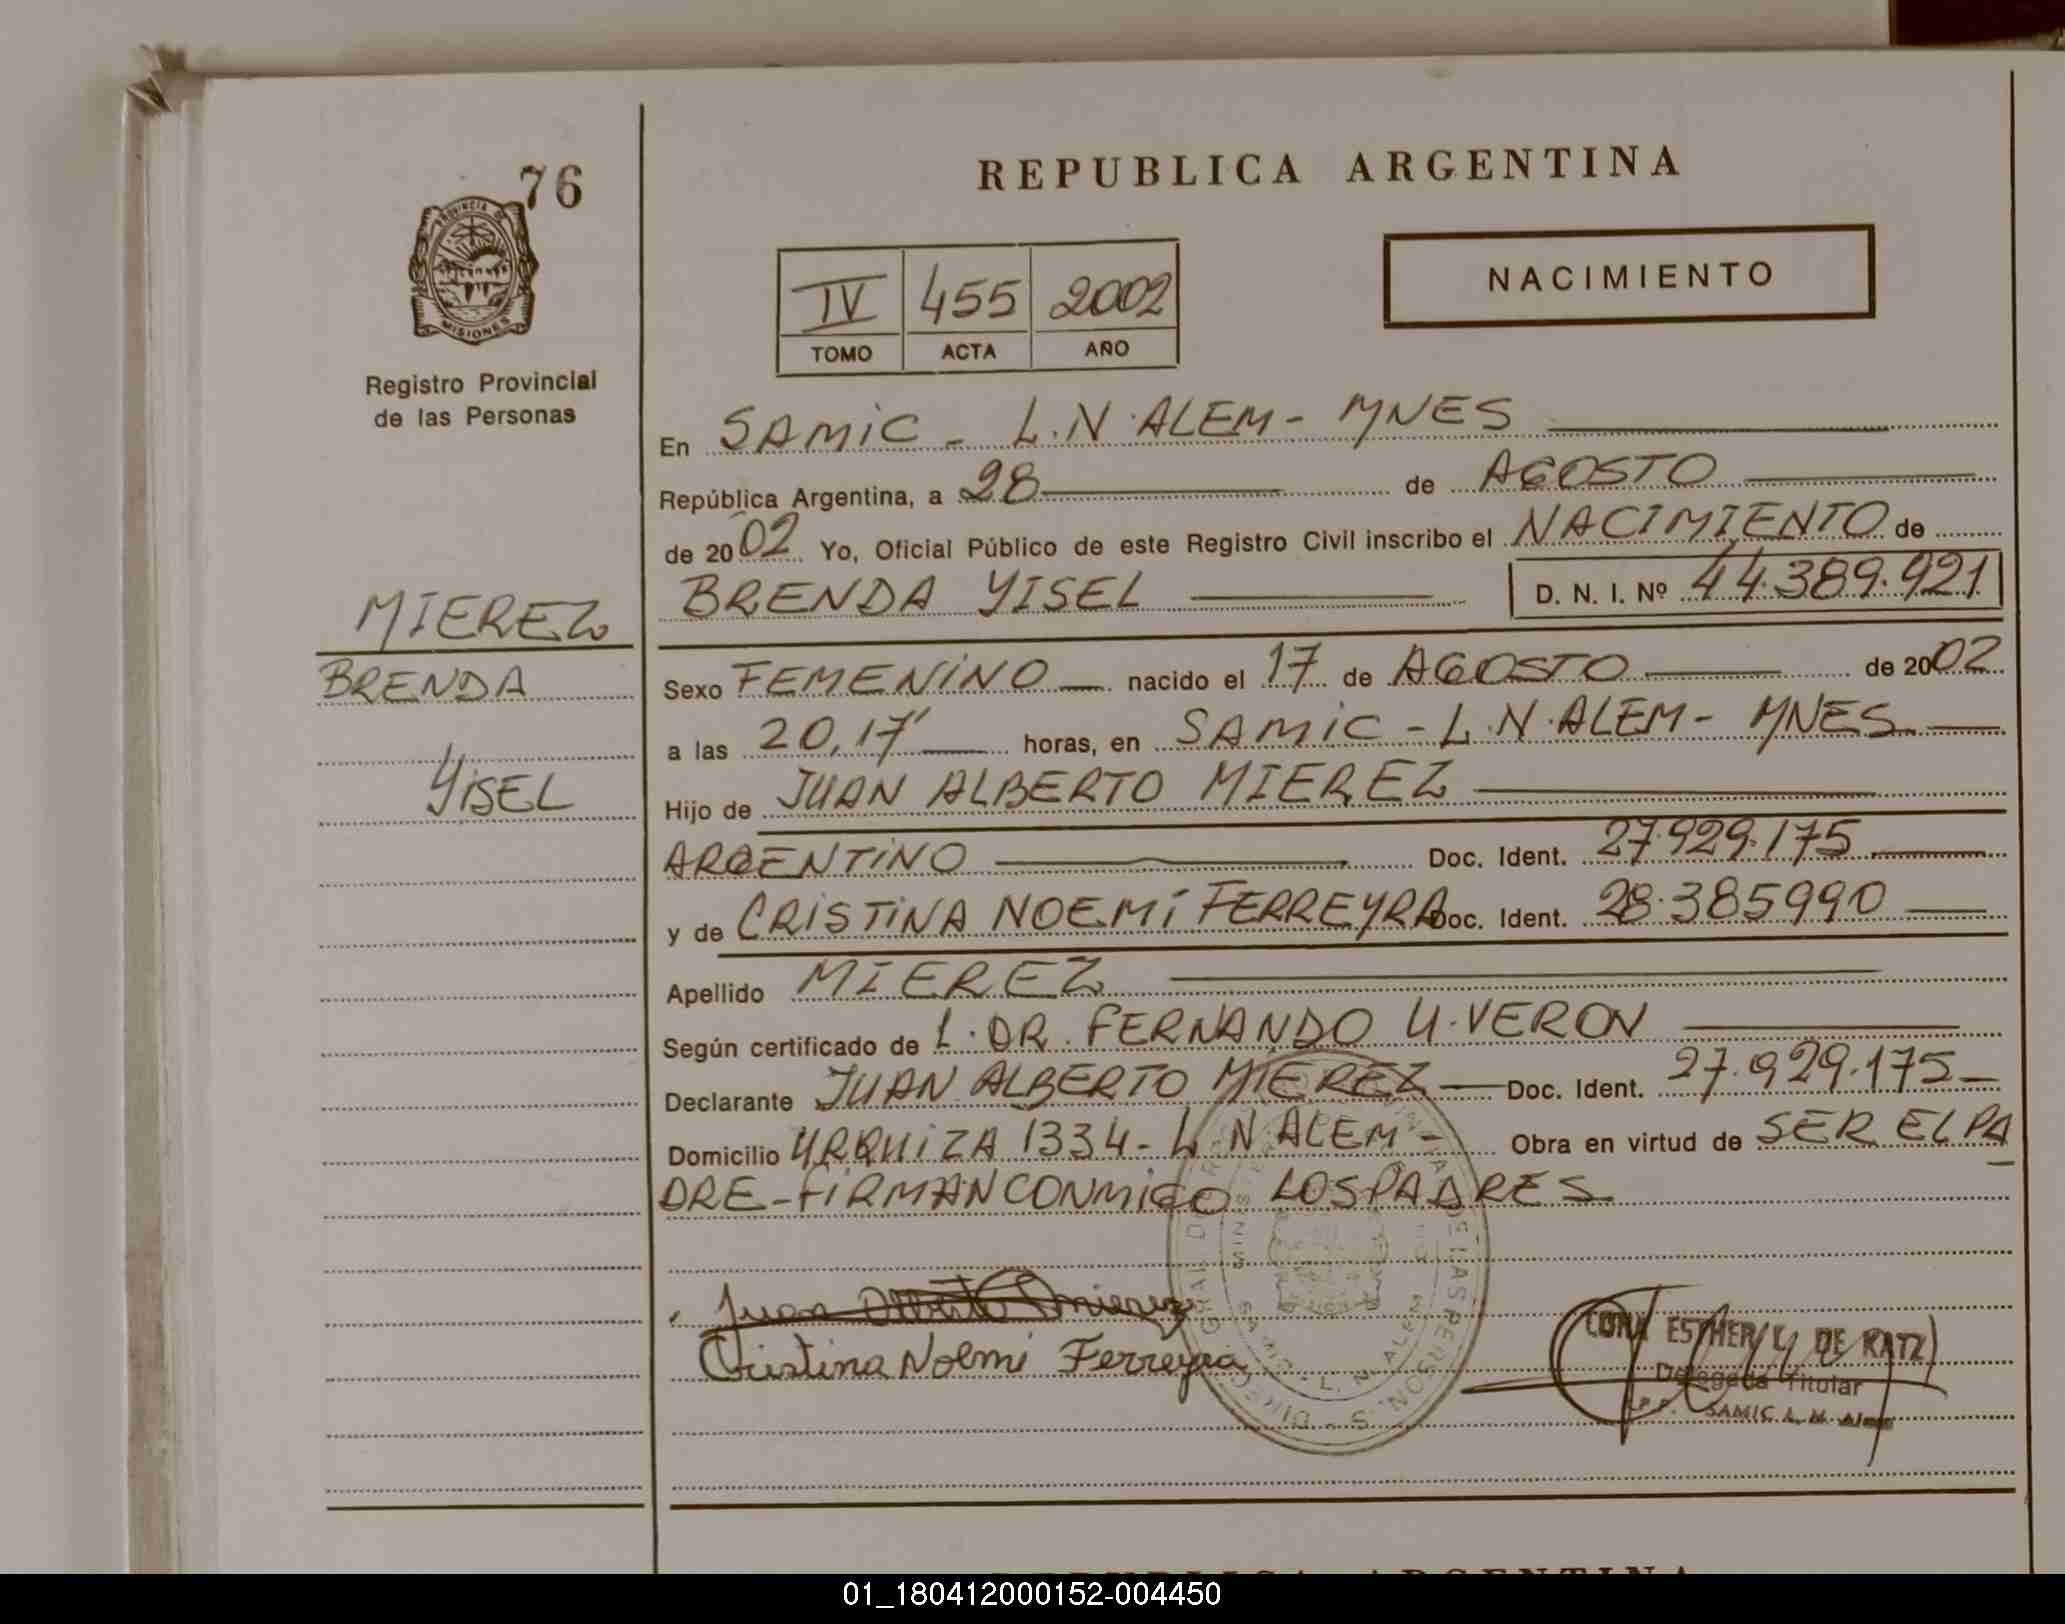 76
PROVINCIA DE
MISIONES
Registro Provincial
de las Personas
MIEREZ
BRENDA
YISEL
REPUBLICA ARGENTINA
IV 455 2002
TOMO ACTA AÑO
NACIMIENTO
En SAMIC - L.N. ALEM - MNES
República Argentina, a 28 de AGOSTO
de 2002 Yo, Oficial Público de este Registro Civil inscribo el NACIMIENTO de
BRENDA YISEL D. N. I. Nº 44.389.921
Sexo FEMENINO nacido el 17 de AGOSTO de 2002
a las 20,17' horas, en SAMIC - L.N. ALEM - MNES
Hijo de JUAN ALBERTO MIEREZ
ARGENTINO Doc. Ident. 27.929.175
y de CRISTINA NOEMÍ FERREYRA Doc. Ident. 28.385990
Apellido MIEREZ
Según certificado de L. DR. FERNANDO U. VERON
Declarante JUAN ALBERTO MIEREZ Doc. Ident. 27.929.175
Domicilio URQUIZA 1334 - L N ALEM - Obra en virtud de SER EL PA
DRE - FIRMAN CONMIGO LOS PADRES
Juan Alberto Mierez
Cristina Noemi Ferreyra
ESTHER L. DE KATZ
Delegada Titular
SAMIC L. N. Alem
REPUBLICA ARGENTINA
01_180412000152-004450